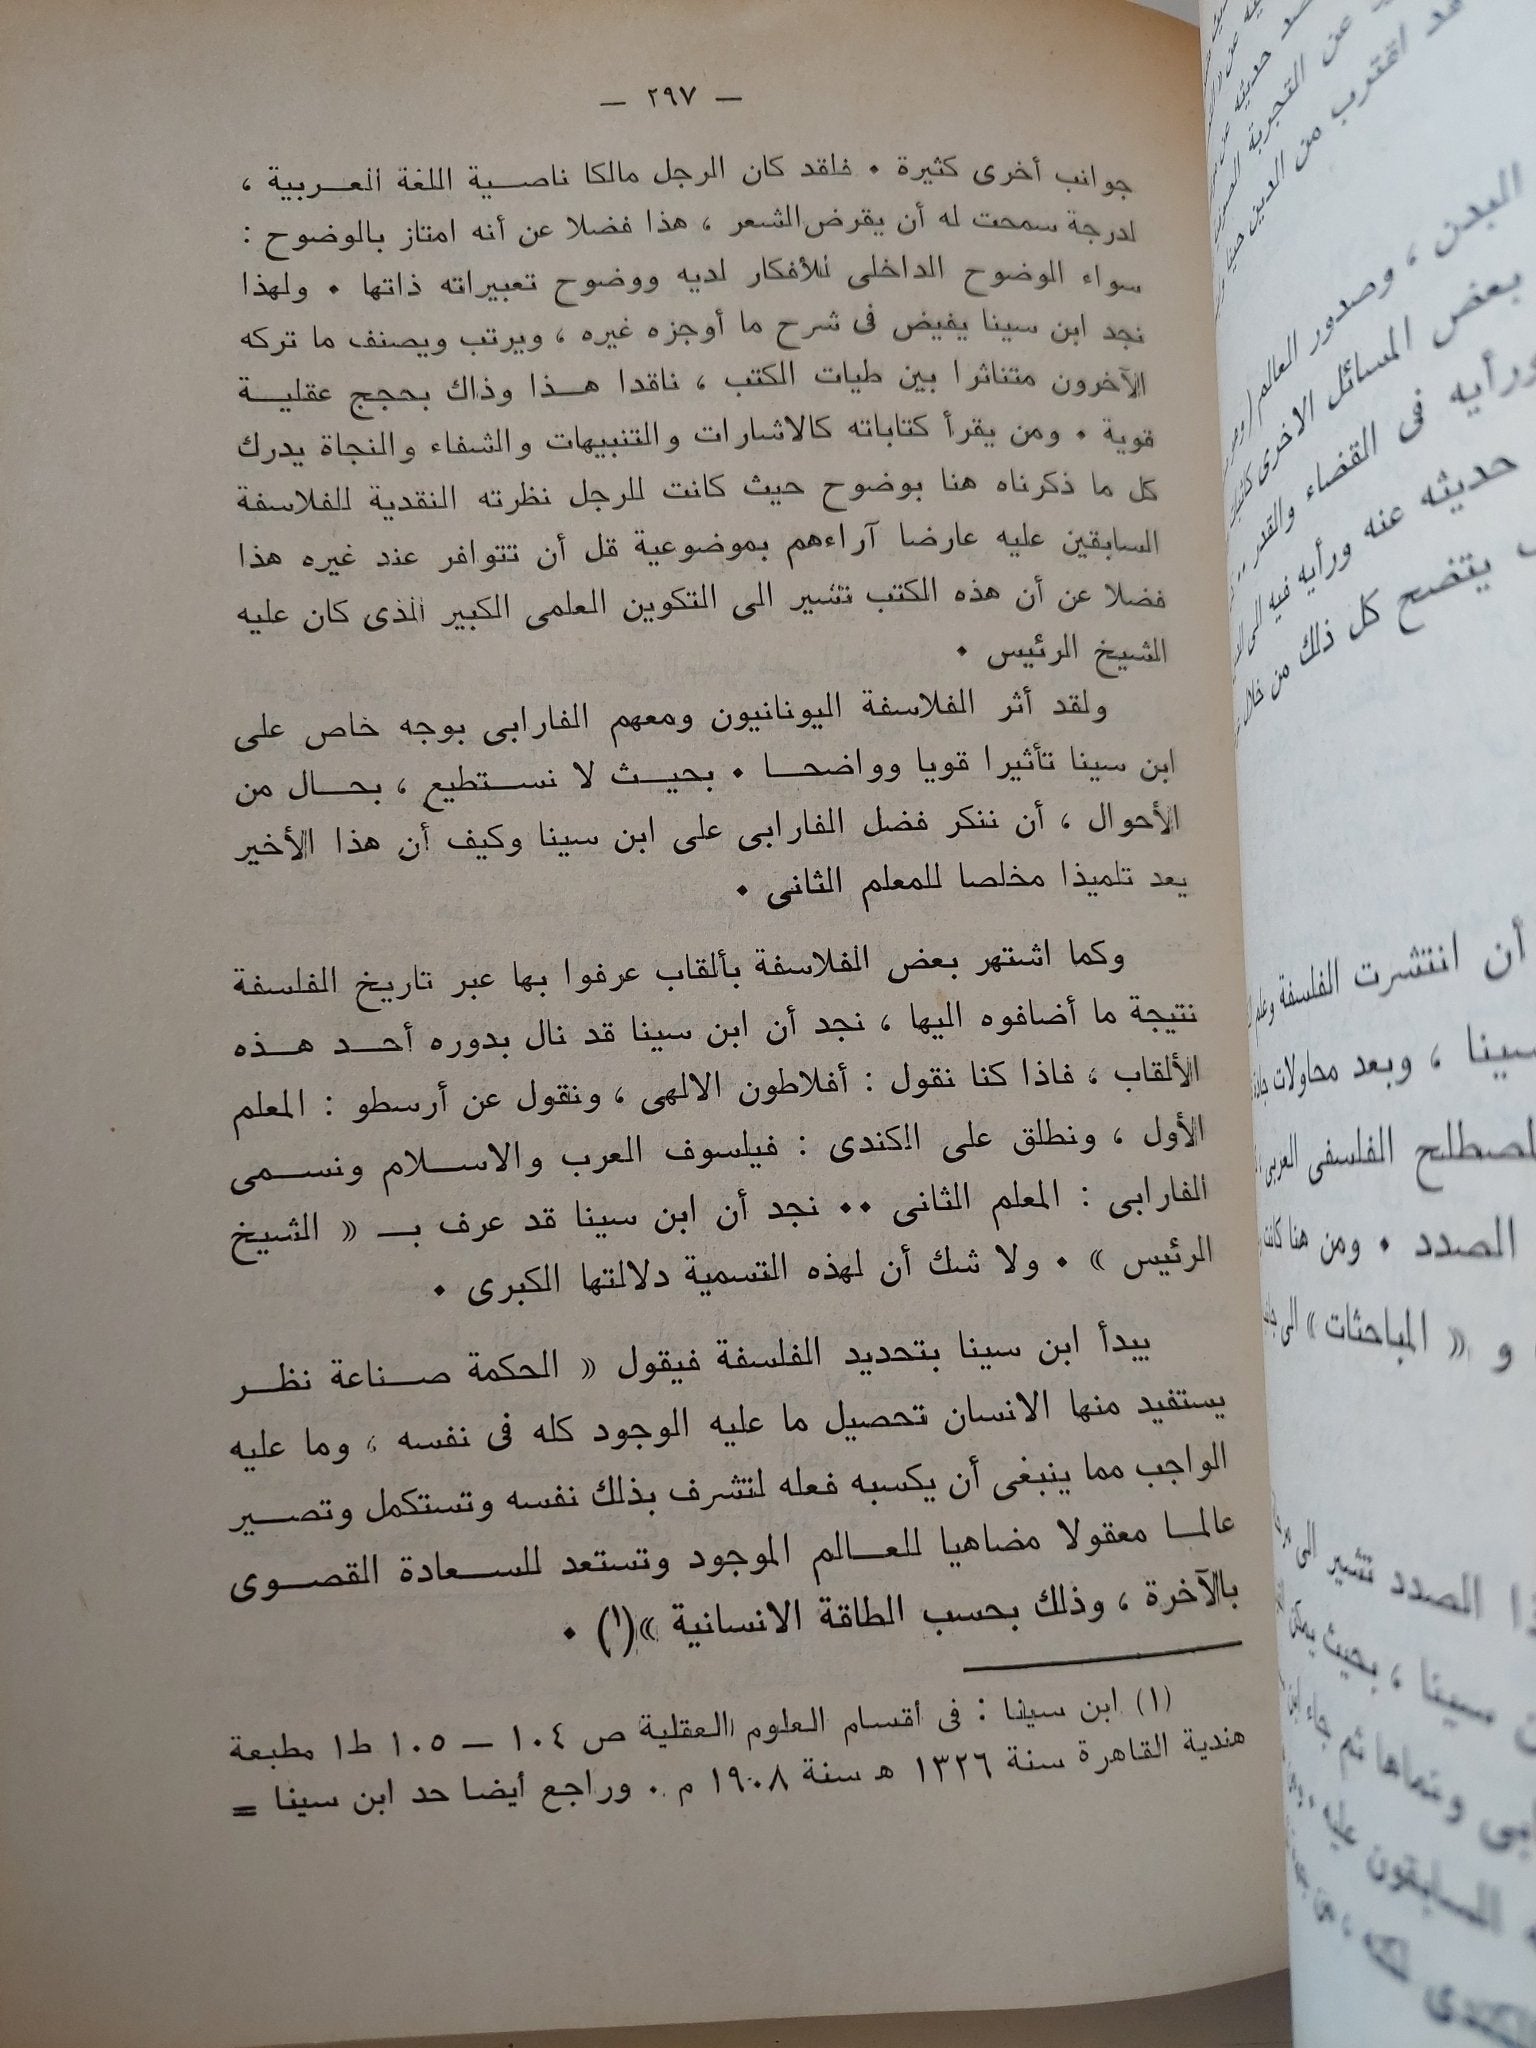 — ٢٩٧ —
جوانب أخرى كثيرة • فلقد كان الرجل مالكا ناصية اللغة العربية ،
لدرجة سمحت له أن يقرض الشعر ، هذا فضلا عن أنه امتاز بالوضوح :
سواء الوضوح الداخلى للأفكار لديه ووضوح تعبيراته ذاتها • ولهذا
نجد ابن سينا يفيض فى شرح ما أوجزه غيره ، ويرتب ويصنف ما تركه
الآخرون متناثرا بين طيات الكتب ، ناقدا هذا وذاك بحجج عقلية
قوية • ومن يقرأ كتاباته كالاشارات والتنبيهات والشفاء والنجاة يدرك
كل ما ذكرناه هنا بوضوح حيث كانت للرجل نظرته النقدية للفلاسفة
السابقين عليه عارضا آراءهم بموضوعية قل أن تتوافر عند غيره هذا
فضلا عن أن هذه الكتب تشير الى التكوين العلمى الكبير الذى كان عليه
الشيخ الرئيس •
ولقد أثر الفلاسفة اليونانيون ومعهم الفارابى بوجه خاص على
ابن سينا تأثيرا قويا وواضحا • بحيث لا نستطيع ، بحال من
الأحوال ، أن ننكر فضل الفارابى على ابن سينا وكيف أن هذا الأخير
يعد تلميذا مخلصا للمعلم الثانى •
وكما اشتهر بعض الفلاسفة بألقاب عرفوا بها عبر تاريخ الفلسفة
نتيجة ما أضافوه اليها ، نجد أن ابن سينا قد نال بدوره أحد هذه
الألقاب ، فاذا كنا نقول : أفلاطون الالهى ، ونقول عن أرسطو : المعلم
الأول ، ونطلق على الكندى : فيلسوف العرب والاسلام ونسمى
الفارابى : المعلم الثانى •• نجد أن ابن سينا قد عرف بـ « الشيخ
الرئيس » • ولا شك أن لهذه التسمية دلالتها الكبرى •
يبدأ ابن سينا بتحديد الفلسفة فيقول « الحكمة صناعة نظر
يستفيد منها الانسان تحصيل ما عليه الوجود كله فى نفسه ، وما عليه
الواجب مما ينبغى أن يكسبه فعله لتشرف بذلك نفسه وتستكمل وتصير
عالما معقولا مضاهيا للعالم الموجود وتستعد للسعادة القصوى
بالآخرة ، وذلك بحسب الطاقة الانسانية »(١) •
(١) ابن سينا : فى أقسام العلوم العقلية ص ١٠٤ — ١٠٥ ط١ مطبعة
هندية القاهرة سنة ١٣٢٦ هـ سنة ١٩٠٨ م • وراجع أيضا حد ابن سينا =
اقترب من الدين
البدن ، وصدور العالم
بعض المسائل الأخرى
ورأيه فى القضاء والقدر ..
حديثه عنه ورأيه فيه الى
يتضح كل ذلك من خلال
أن انتشرت الفلسفة
سينا ، وبعد محاولات
المصطلح الفلسفى العربى
الصدد • ومن هنا كانت
و « المباحثات » الى
الصدد تشير الى
سينا ، بحيث يمكن
ثم جاء ابن
السابقون عليه